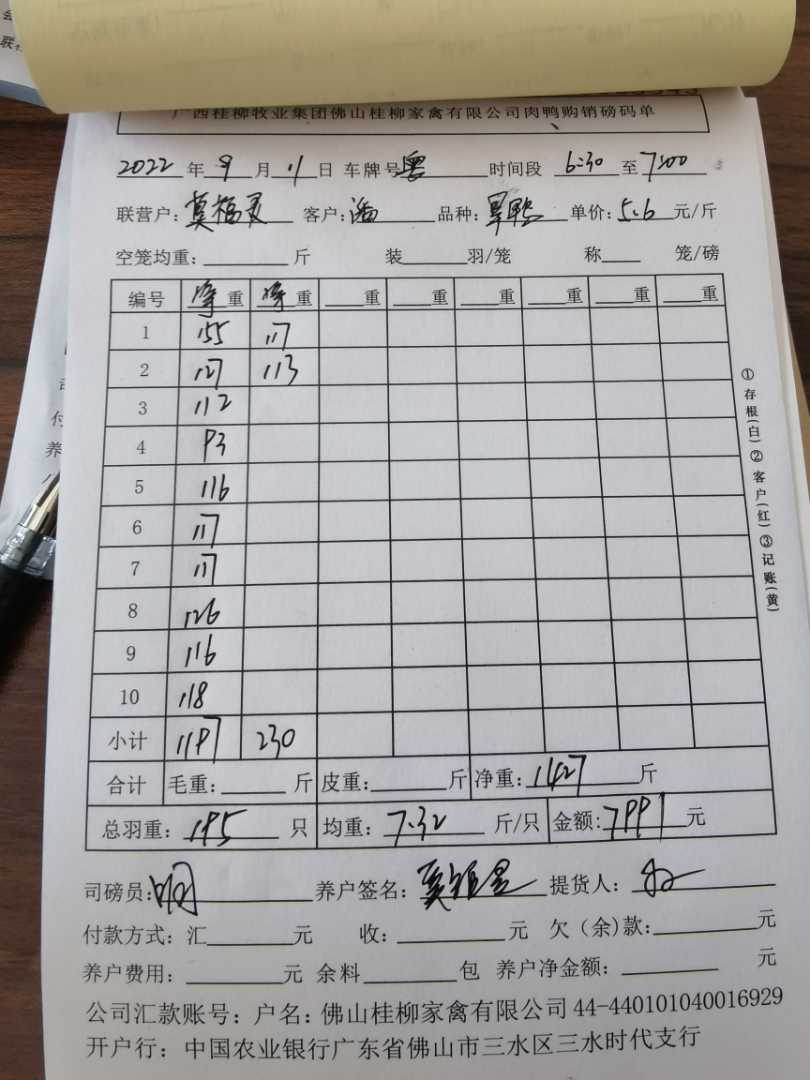 广西桂柳牧业集团佛山桂柳家禽有限公司肉鸭购销磅码单
2022年9月11日 车牌号粤 时间段 6:30至7:00
联营户: 客户:潘 品种:旱鸭 单价:5.6元/斤
空笼均重: 斤 装 羽/笼 称 笼/磅
编号 净重 净重 重 重 重 重 重 重
1 155 117
2 127 113
3 112
4 93
5 116
6 117
7 117
8 126
9 116
10 118
小计 1197 230
合计 毛重: 斤 皮重: 斤 净重:1427斤
总羽重:195只 均重:7.32斤/只 金额:7991元
司磅员:明 养户签名: 提货人:
付款方式:汇 元 收: 元 欠(余)款: 元
养户费用: 元 余料 包 养户净金额: 元
公司汇款账号:户名:佛山桂柳家禽有限公司44-440101040016929
开户行:中国农业银行广东省佛山市三水区三水时代支行
①存根(白)②客户(红)③记账(黄)